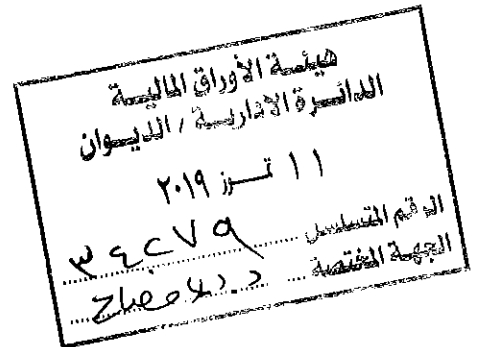 هيئة الأوراق المالية
الدائرة الادارية / الديوان
١١ تموز ٢٠١٩
الرقم المتسلسل ٣٤٢٧٩
الجهة المختصة